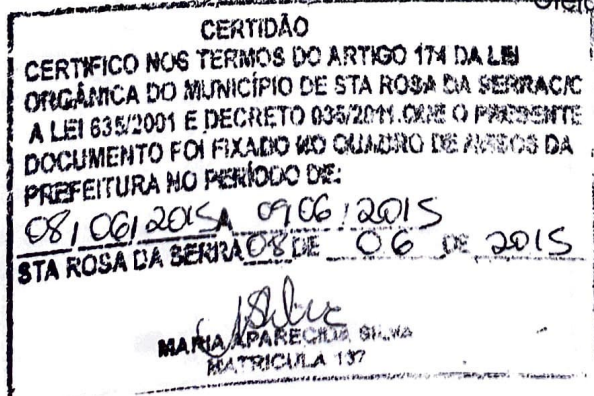 CERTIDÃO
CERTIFICO NOS TERMOS DO ARTIGO 174 DA LEI
ORGÂNICA DO MUNICÍPIO DE STA ROSA DA SERRA C/C
A LEI 635/2001 E DECRETO 035/2011. QUE O PRESENTE
DOCUMENTO FOI FIXADO NO QUADRO DE AVISOS DA
PREFEITURA NO PERÍODO DE:
08/06/2015 A 09/06/2015
STA ROSA DA SERRA 08 DE 06 DE 2015
MARIA APARECIDA SILVA
MATRICULA 137